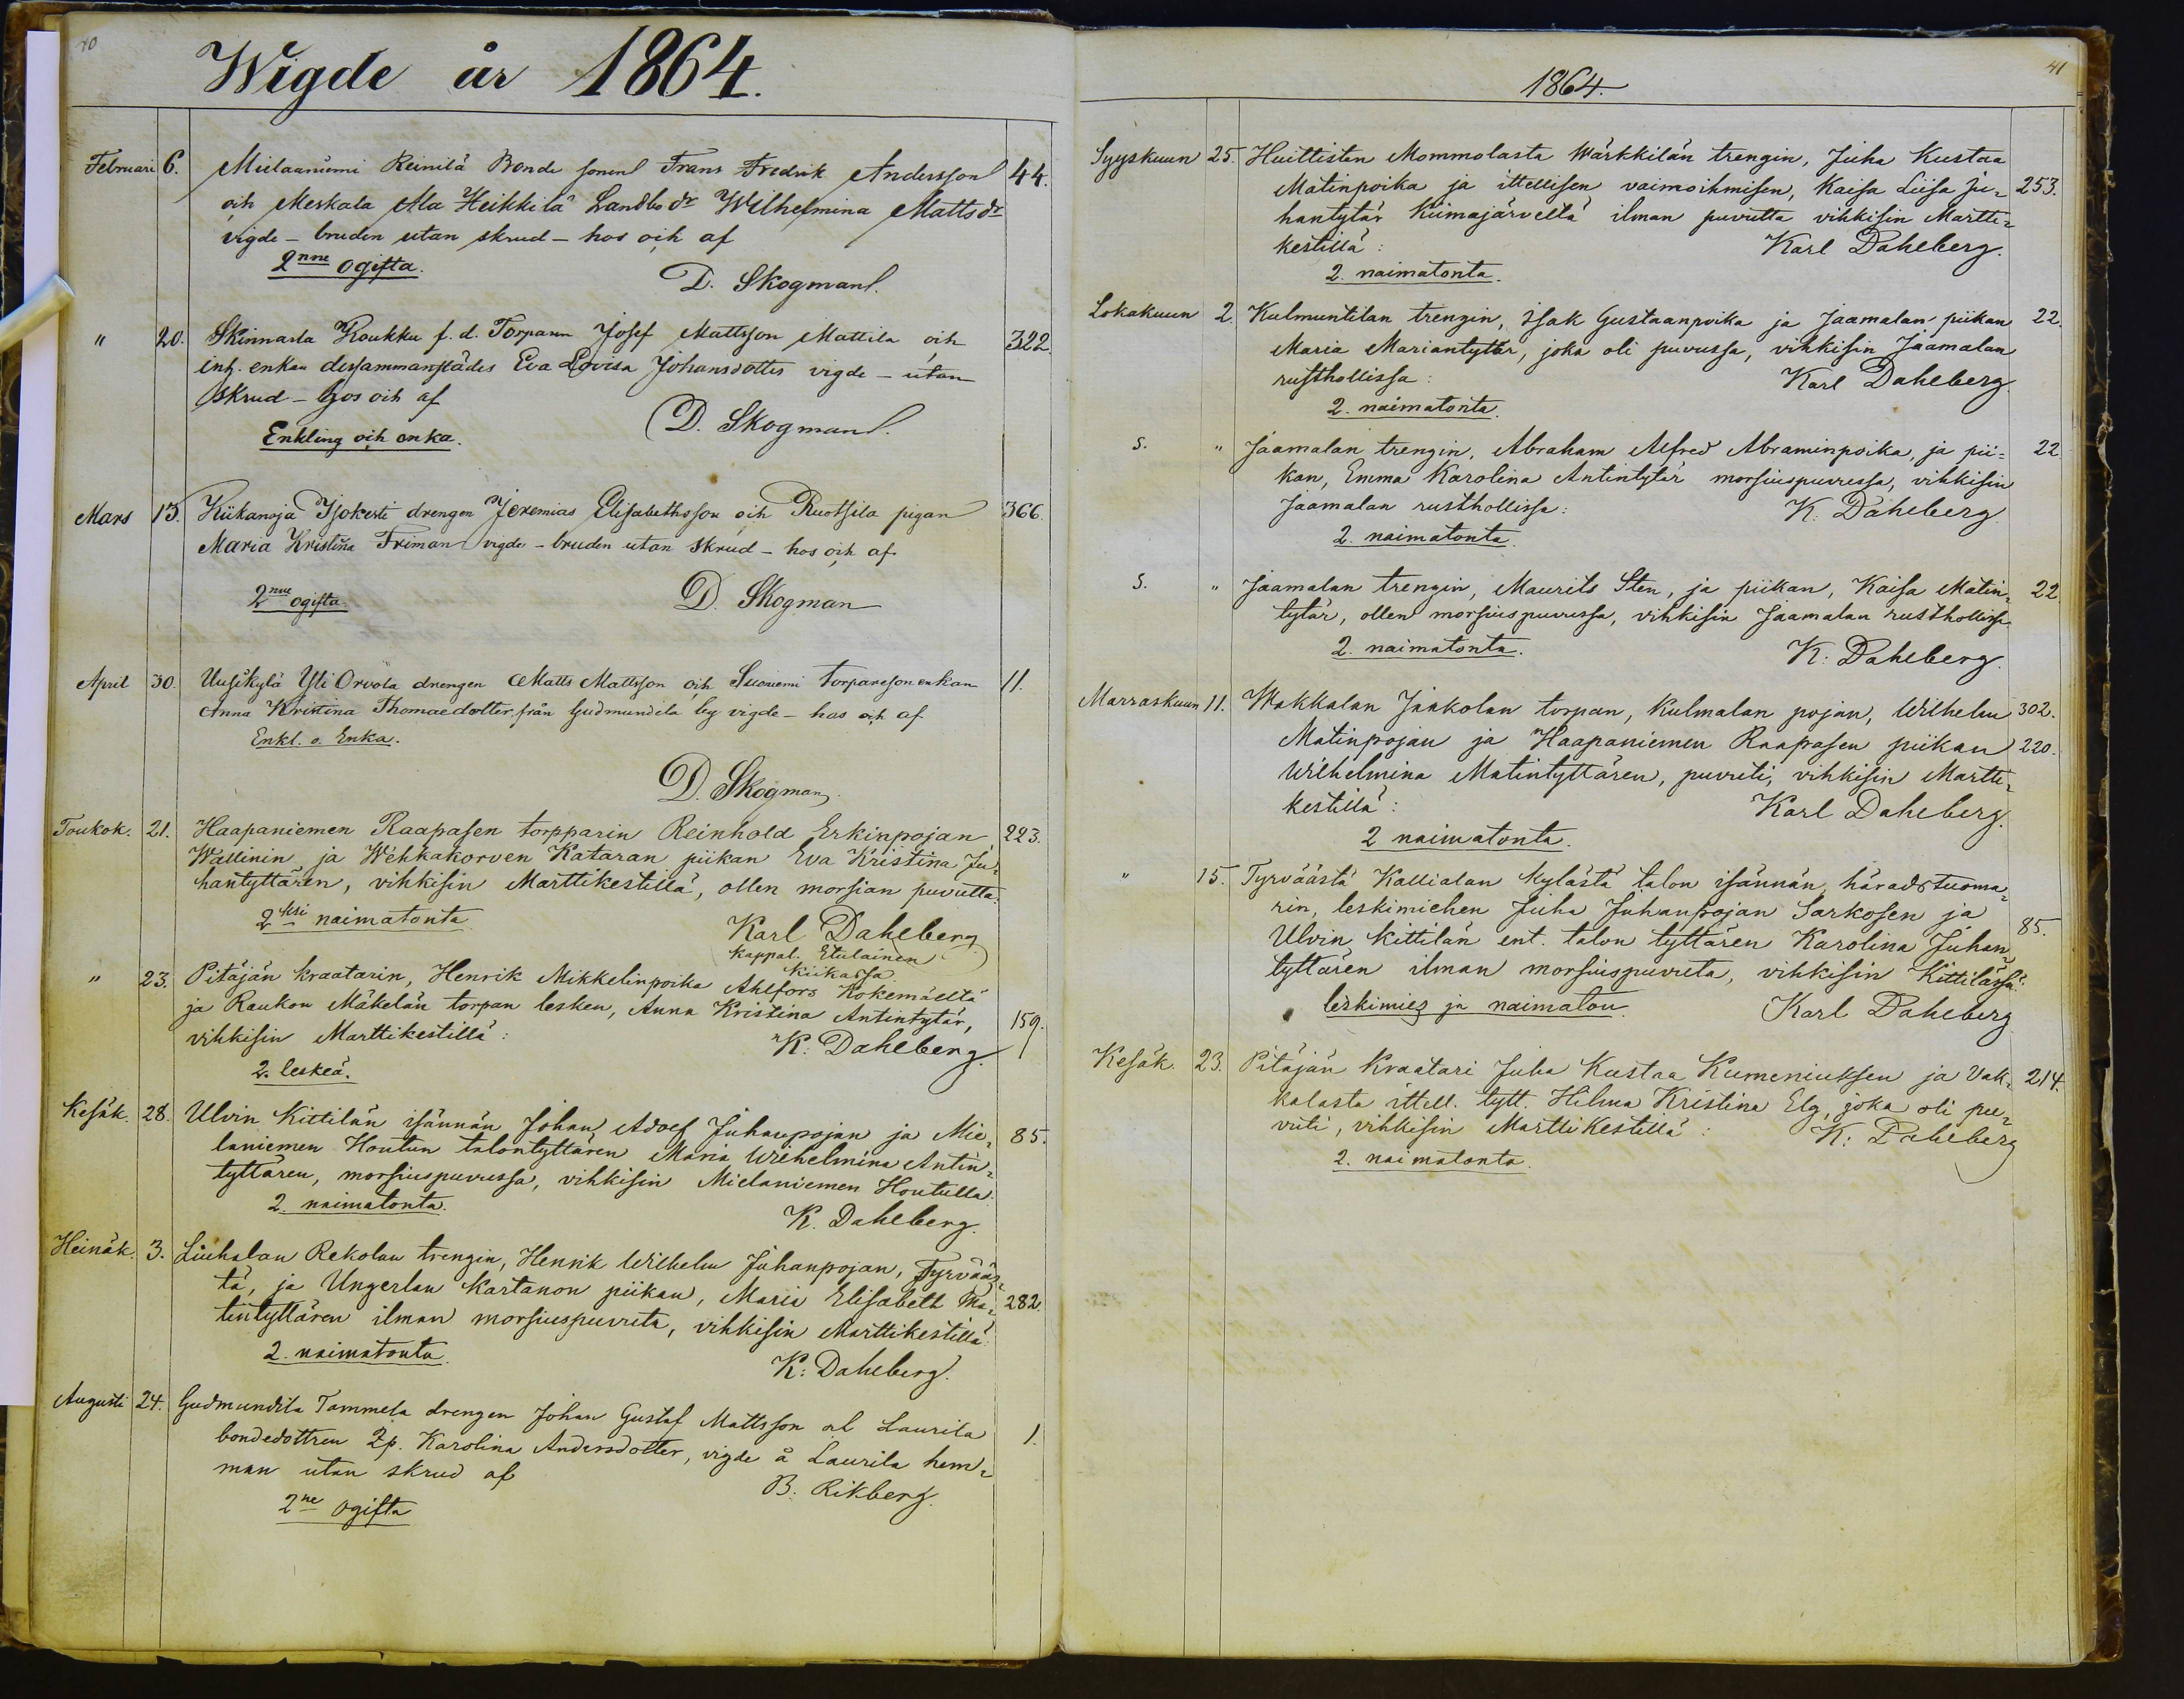 40
Wigde år 1864.
Februari 6. Mielaaniemi Reinilä Bonde sonen Frans Fredrik Andersson 44.
och Meskala Ala Heikkilä Landbo dr Wilhelmina Mattsdr
vigde – bruden utan skrud – hos och af
2nne ogifta. D. Skogman.
" 20. Skinnarla Koukku f. d. Torparen Josef Mattsson Mattila och 322.
inh. enkan dersammanstädes Eva Lovisa Johansdotter vigde – utan
skrud – hos och af
Enkling och enka. D. Skogman.
Mars 13. Kiikanoja Jjokesti drengen Jeremias Elisabethsson och Ruotsila pigan 366.
Maria Kristina Friman vigde – bruden utan skrud – hos och af
2nne ogifta. D. Skogman
April 30. Uusikylä Yli Orvola drengen Matts Mattsson och Suoniemi torpareson enkan 11.
Anna Kristina Thomaedotter från Gudmundila by vigde – hos och af
Enkl. o. Enka.
D. Skogman.
Toukok. 21. Haapaniemen Raapasen torpparin Reinhold Erkinpojan 223.
Wallinin, ja Wehkakorven Kataran piikan Eva Kristina Ju-
hantyttären, vihkisin Marttikestillä, ollen morsian puvutta.
2ksi naimatonta. Karl Dahlberg
kappal. Etulainen
Kiikassa
" 23. Pitäjän kraatarin, Henrik Mikkelinpoika Ahlfors Kokemäeltä
ja Raukon Mäkelän torpan lesken, Anna Kristina Antintytär, 159.
vihkisin Marttikestillä: K. Dahlberg.
2. leskeä.
Kesäk. 28. Ulvin Kittilän isännän Johan Adolf Juhanpojan ja Mie- 85.
laniemen Houtun talontyttären Maria Wilhelmina Antin-
tyttären, morsiuspuvussa, vihkisin Mielaniemen Houtulla.
2. naimatonta. K. Dahlberg.
Heinäk. 3. Liuhalan Rekolan trengin, Henrik Wilhelm Juhanpojan, Tyrvääs-
tä, ja Ungerlan Kartanon piikan, Maria Elisabeth Ma- 282.
tintyttären ilman morsiuspuvuta, vihkisin Marttikestillä:
2. naimatonta. K: Dahlberg.
Augusti 24. Gudmundila Tammela drengen Johan Gustaf Mattsson o. Laurila 1.
bondedottren Karolina Andersdotter, vigde å Laurila hem-
man utan skrud af B. Rikberg.
2ne ogifta
41
1864.
Syyskuun 25. Huittisten Mommolasta Wärkkilän trengin, Juha Kustaa
Matinpoika ja ittellisen vaimoihmisen, Kaisa Liisa Ju- 253.
hantytär Kiimajärveltä ilman puvutta vihkisin Martti-
kestillä: Karl Dahlberg.
2. naimatonta.
Lokakuun 2. Kulmuntilan trengin, Isak Gustaanpoika ja Jaamalan piikan 22.
Maria Mariantyttär, joka oli puvussa, vihkisin Jaamalan
rusthollissa: Karl Dahlberg
2. naimatonta.
S. " Jaamalan trengin, Abraham Alfred Abraminpoika, ja pii- 22.
kan, Emma Karolina Antintytär morsiuspuvussa, vihkisin
Jaamalan rusthollissa: K: Dahlberg
2. naimatonta.
S. " Jaamalan trengin, Maurits Sten, ja piikan, Kaisa Matin- 22.
tytär, ollen morsiuspuvussa, vihkisin Jaamalan rusthollissa
2. naimatonta. K: Dahlberg.
Marraskuun 11. Makkalan Jaakolan torpan, Kulmalan pojan, Wilhelm 302.
Matinpojan ja Haapaniemen Raapasen piikan 220.
Wilhelmina Matintyttären, puvuti, vihkisin Martti-
kestillä: Karl Dahlberg.
2 naimatonta.
" 15. Tyrväästä Kallialan kylästä talon isännän, häradstuoma-
rin, leskimiehen Juha Juhanpojan Sarkosen ja
Ulvin Kittilän ent. talon tyttären Karolina Juhan- 85.
tyttären ilman morsiuspuvuta, vihkisin Kittilässä:
leskimies ja naimaton. Karl Dahlberg
Kesäk. 23. Pitäjän Kraatari Juha Kustaa Kumeniuksen ja Vak- 214.
kalasta ittell. tytt. Hilma Kristina Elg, joka oli pu-
vuti, vihkisin Marttikestillä: K: Dahlberg
2. naimatonta.